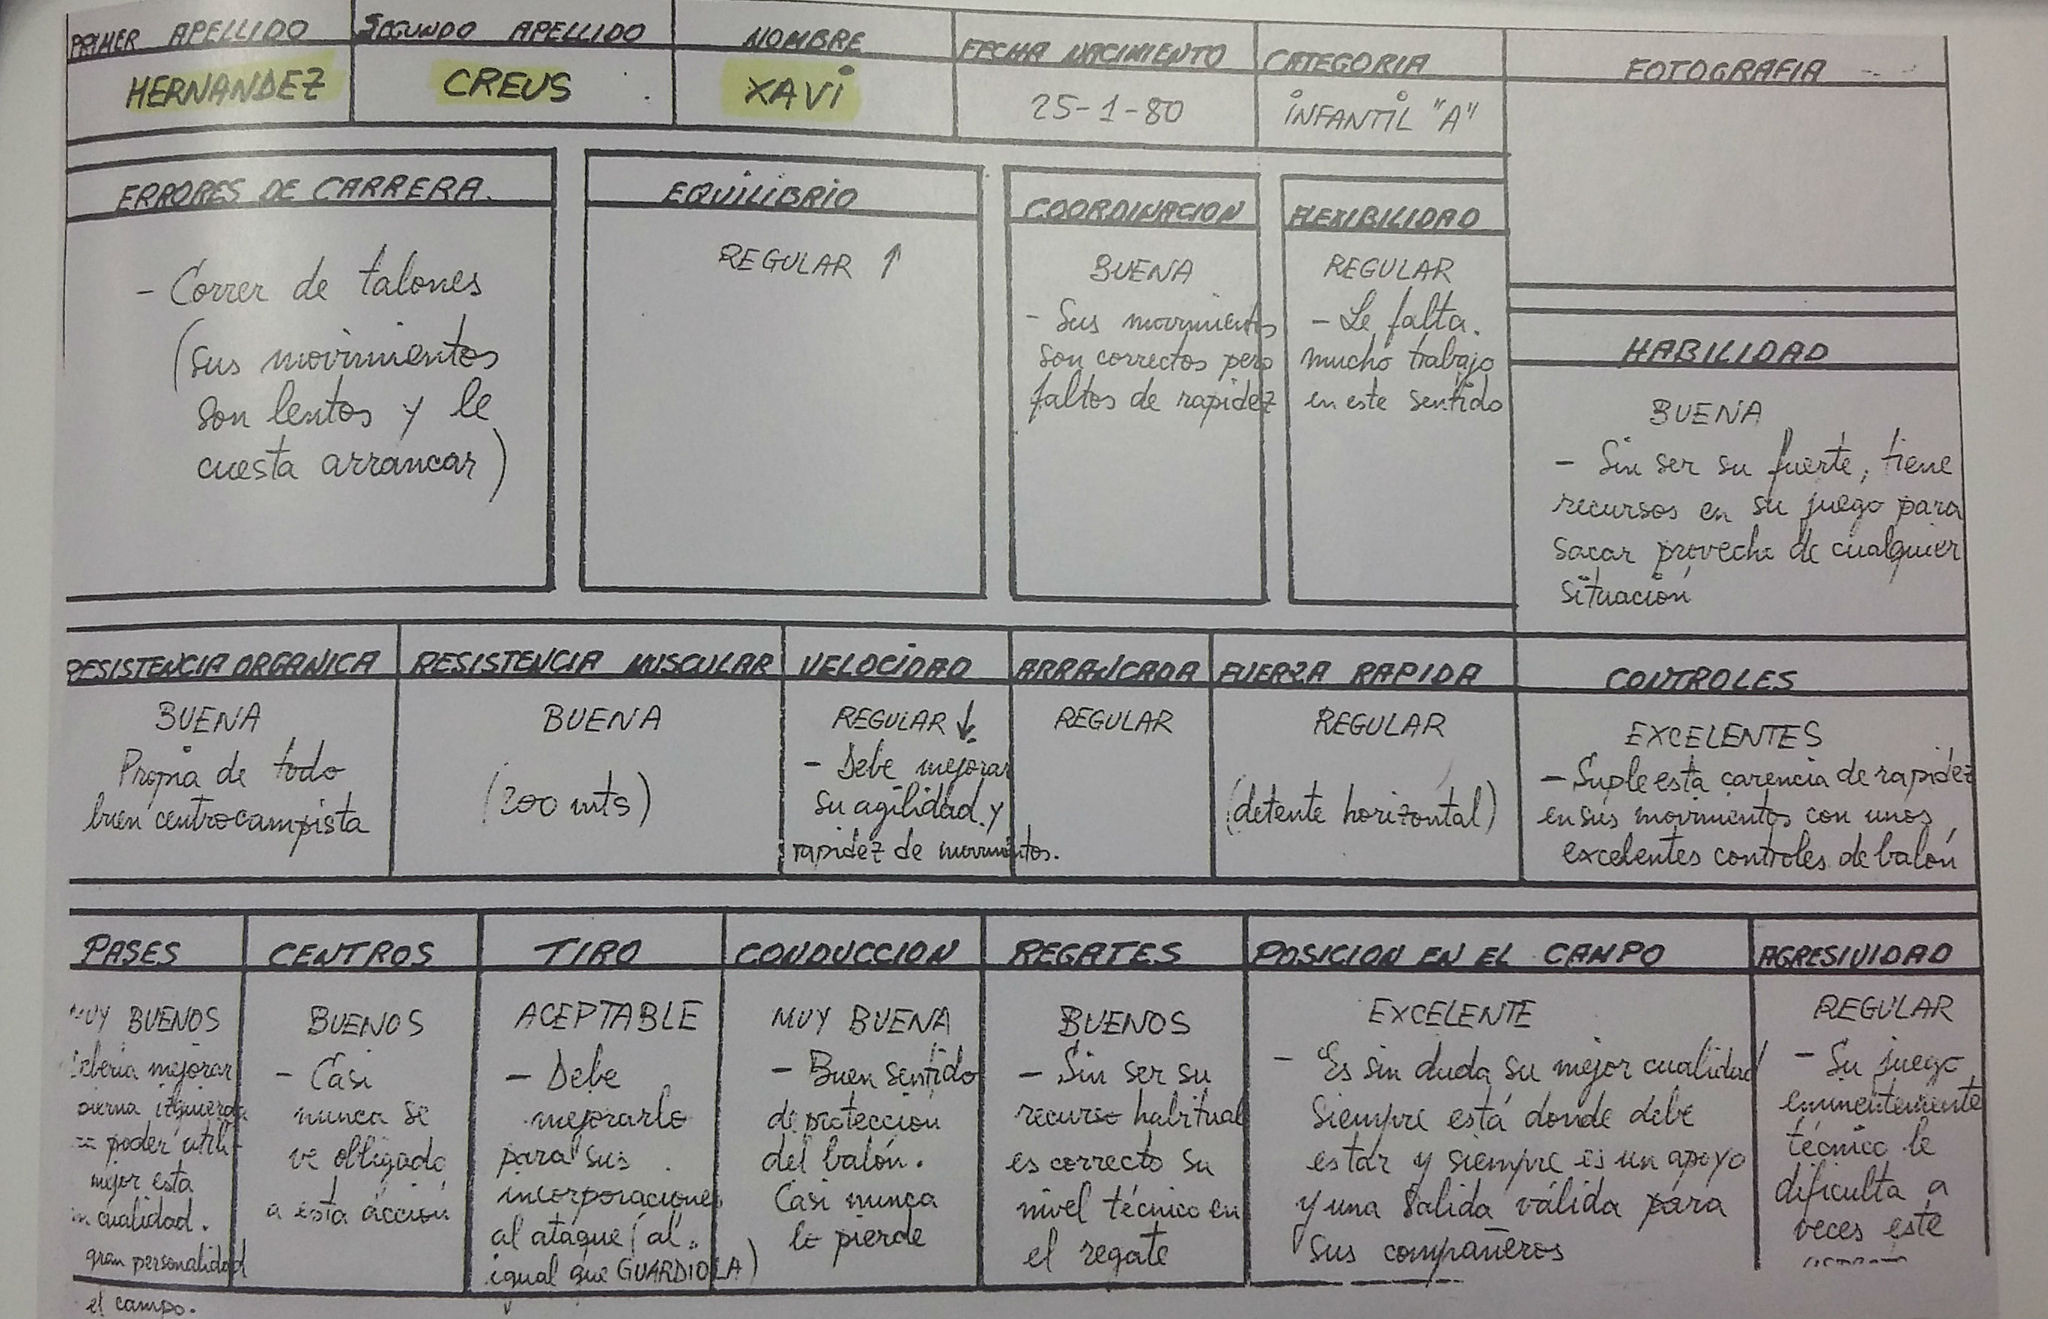 PRIMER APELLIDO
HERNANDEZ
SEGUNDO APELLIDO
CREUS
NOMBRE
XAVI
FECHA NACIMIENTO
25-1-80
CATEGORIA
INFANTIL "A"
FOTOGRAFIA
ERRORES DE CARRERA.
- Correr de talones
(sus movimientos
son lentos y le
cuesta arrancar)
EQUILIBRIO
REGULAR ↑
COORDINACION
BUENA
- Sus movimientos
son correctos pero
faltos de rapidez
FLEXIBILIDAD
REGULAR
- Le falta
mucho trabajo
en este sentido
HABILIDAD
BUENA
- Sin ser su fuerte, tiene
recursos en su juego para
sacar provecho de cualquier
situación
RESISTENCIA ORGANICA
BUENA
Propia de todo
buen centrocampista
RESISTENCIA MUSCULAR
BUENA
(200 mts)
VELOCIDAD
REGULAR ↓
- Debe mejorar
su agilidad y
rapidez de movimientos.
ARRANCADA
REGULAR
FUERZA RAPIDA
REGULAR
(detente horizontal)
CONTROLES
EXCELENTES
- Suple esta carencia de rapidez
en sus movimientos con unos
excelentes controles de balón
PASES
MUY BUENOS
mejorar
pierna izquierda
poder utili-
mejor esta
cualidad.
gran personalidad
el campo.
CENTROS
BUENOS
- Casi
nunca se
ve obligado
a esta acción
TIRO
ACEPTABLE
- Debe
mejorarlo
para sus
incorporaciones
al ataque (al
igual que GUARDIOLA)
CONDUCCION
MUY BUENA
- Buen sentido
de protección
del balón.
Casi nunca
lo pierde
REGATES
BUENOS
- Sin ser su
recurso habitual
es correcto su
nivel técnico en
el regate
POSICION EN EL CAMPO
EXCELENTE
- Es sin duda su mejor cualidad
Siempre está donde debe
estar y siempre es un apoyo
y una salida válida para
sus compañeros
AGRESIVIDAD
REGULAR
- Su juego
eminentemente
técnico le
dificulta a
veces este